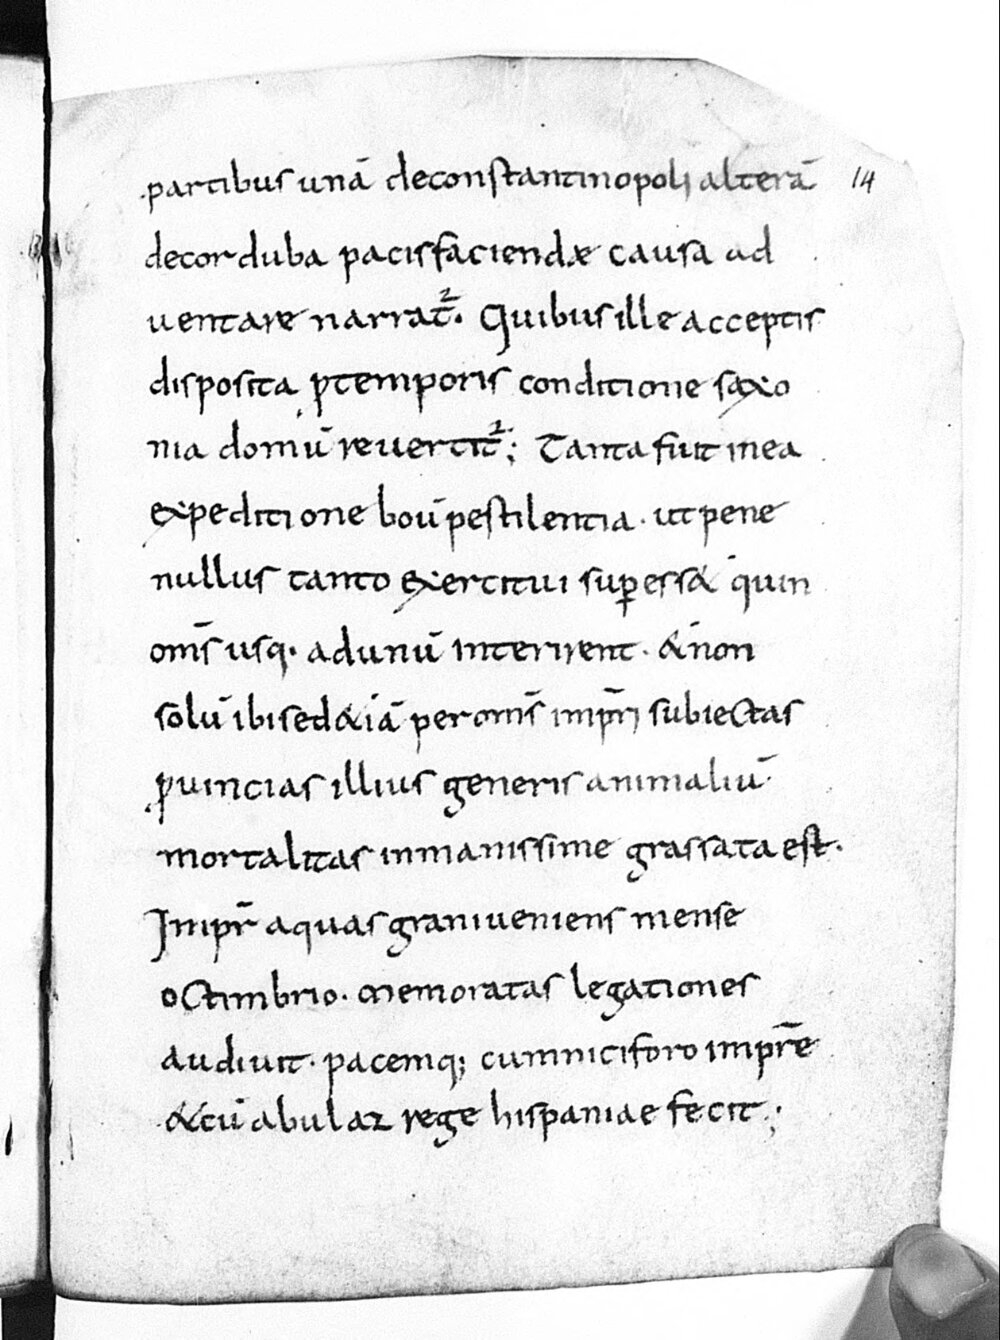 partibus unā deconstantinopoli alterā 14
decorduba pacisfaciendæ causa ad
uentare narrat᷑. Quibus ille acceptis
disposita ꝑtemporis conditione saxo
nia domū reuertit᷑; Tanta fuit inea
expeditione boū pestilentia · ut pene
nullus tanto exercitui suꝑess& quin
om̄s usq· adunū interirent · & non
solū ibi sed &iā per om̄s imꝑ̄ii subiectas
ꝓuincias illius generis animaliū
mortalitas inmanissime grassata est·
Impr̄ aquasgraniueniens mense
octimbrio · memoratas legationes
audiuit · pacemq; cumniciforo impr̄e
&cū abulaz rege hispaniae fecit;